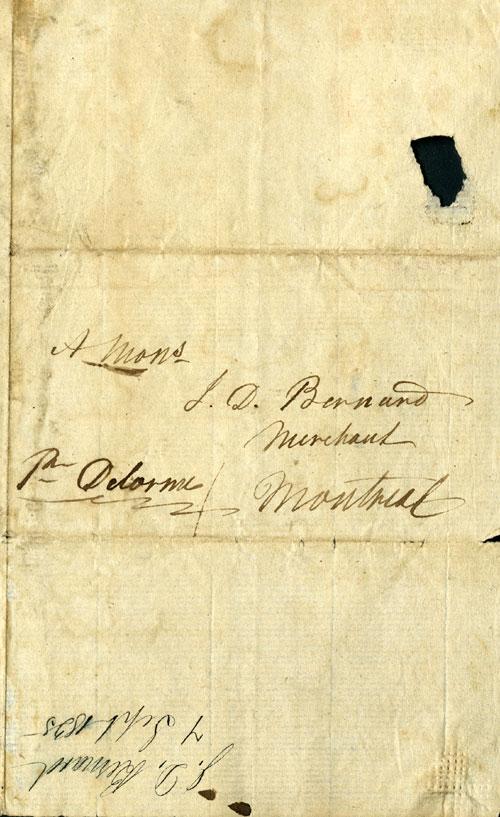 A Mons
J. D. Bernard
Merchant
Pr Delorme / Montreal
J. D. Bernard
7 Sept 1825